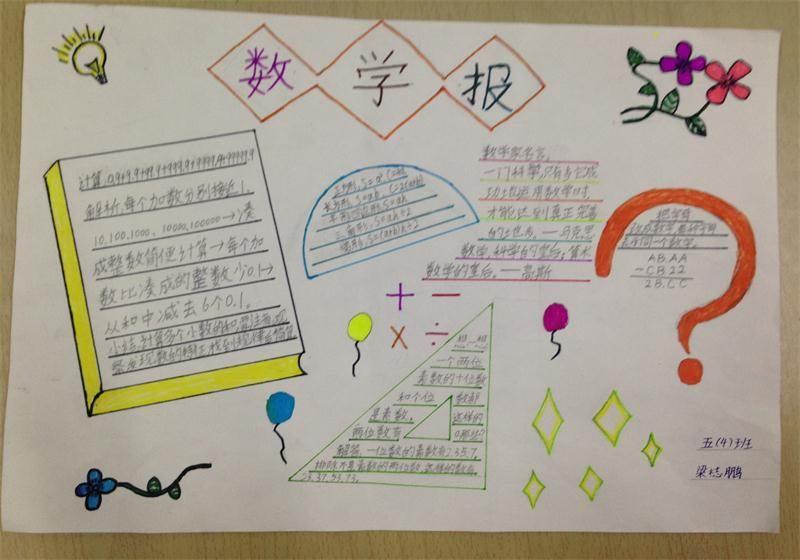 数学报
计算:0.9+9.9+99.9+999.9+9999.9+99999.9
解析:每个加数分别接近1、
10、100、1000、10000、100000→凑
成整数简便计算→每个加
数比凑成的整数少0.1→
从和中减去6个0.1。
小结:计算多个小数的和
正方形:S=a² C=4a
长方形:S=ab C=2(a+b)
平行四边形:S=ah
三角形:S=ah÷2
梯形:S=(a+b)h÷2
数学家名言。
一门科学,只有当它成
功地运用数学时,
才能达到真正完善
的地步。—马克思
数学,科学的皇后;算术,
数学的皇后。—高斯
把字母
改成数字,每种字母
表示同一个数字。
AB.AA
-CB.22
2B.CC
+ -
× ÷
想一想
一个两位
素数的十位数
和个位数都
是素数,这样的
两位数有哪些?
解答:一位数的素数有2.3.5.7,
23.37.53.73。
五(4)班
梁志鹏